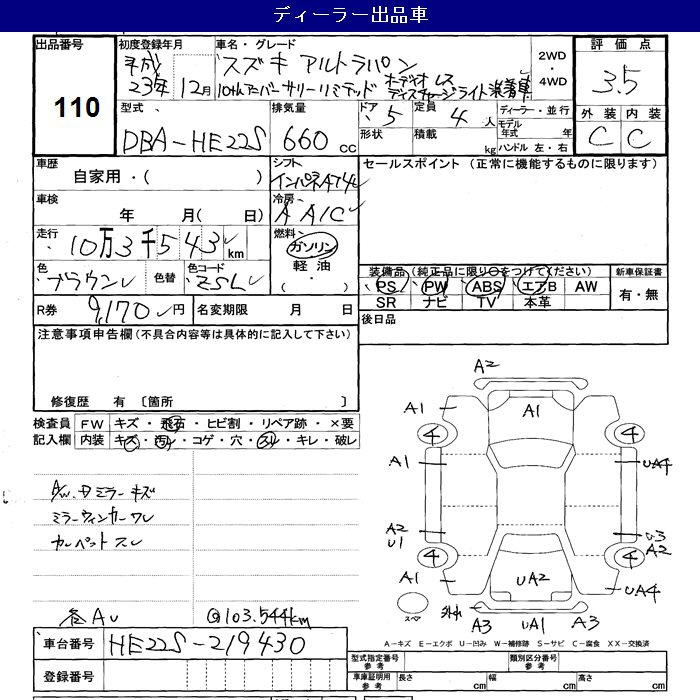 ディーラー出品車
出品番号
110
初度登録年月
平成
23年 12月
車名・グレード
スズキ アルトラパン
10thアニバーサリーリミテッド
オーディオレス
ディスチャージライト装着車
2WD
・
4WD
評価点
3.5
外装 内装
C C
型式
DBA-HE22S
排気量
660 cc
ドア 5
定員 4 人
形状
積載 kg
ディーラー・並行
モデル年式 年
ハンドル 左・右
車歴
自家用・( )
シフト
インパネAT4
セールスポイント (正常に機能するものに限ります)
車検
年 月( 日)
冷房
AAC
走行
10万3千543 km
燃料
ガソリン
軽油
・( )
色
ブラウン
色替
色コード
ZSL
装備品 (純正品に限り○をつけてください)
新車保証書
PS PW ABS エアB AW
SR ナビ TV 本革
有・無
R券 9,170 円
名変期限 月 日
後日品
注意事項申告欄 (不具合内容等は具体的に記入して下さい)
修復歴 有 〔箇所 〕
検査員記入欄
FW キズ・飛石・ヒビ割・リペア跡・×要
内装 キズ・汚レ・コゲ・穴・スレ・キレ・破レ
ミラーキズ
ミラーウィンカーワレ
カーペットスレ
各AU
@103.544km
A2
A1
A1
4
4
A1
UA4
A2
U1
U3
A2
4
4
A1
UA2
UA4
スペア
A3
UA1
A3
A-キズ E-エクボ U-凹み W-補修跡 S-サビ C-腐食 XX-交換済
車台番号 HE22S-219430
登録番号
型式指定番号
参考
類別区分番号
参考
車庫証明用
参考
長さ cm
幅 cm
高さ cm